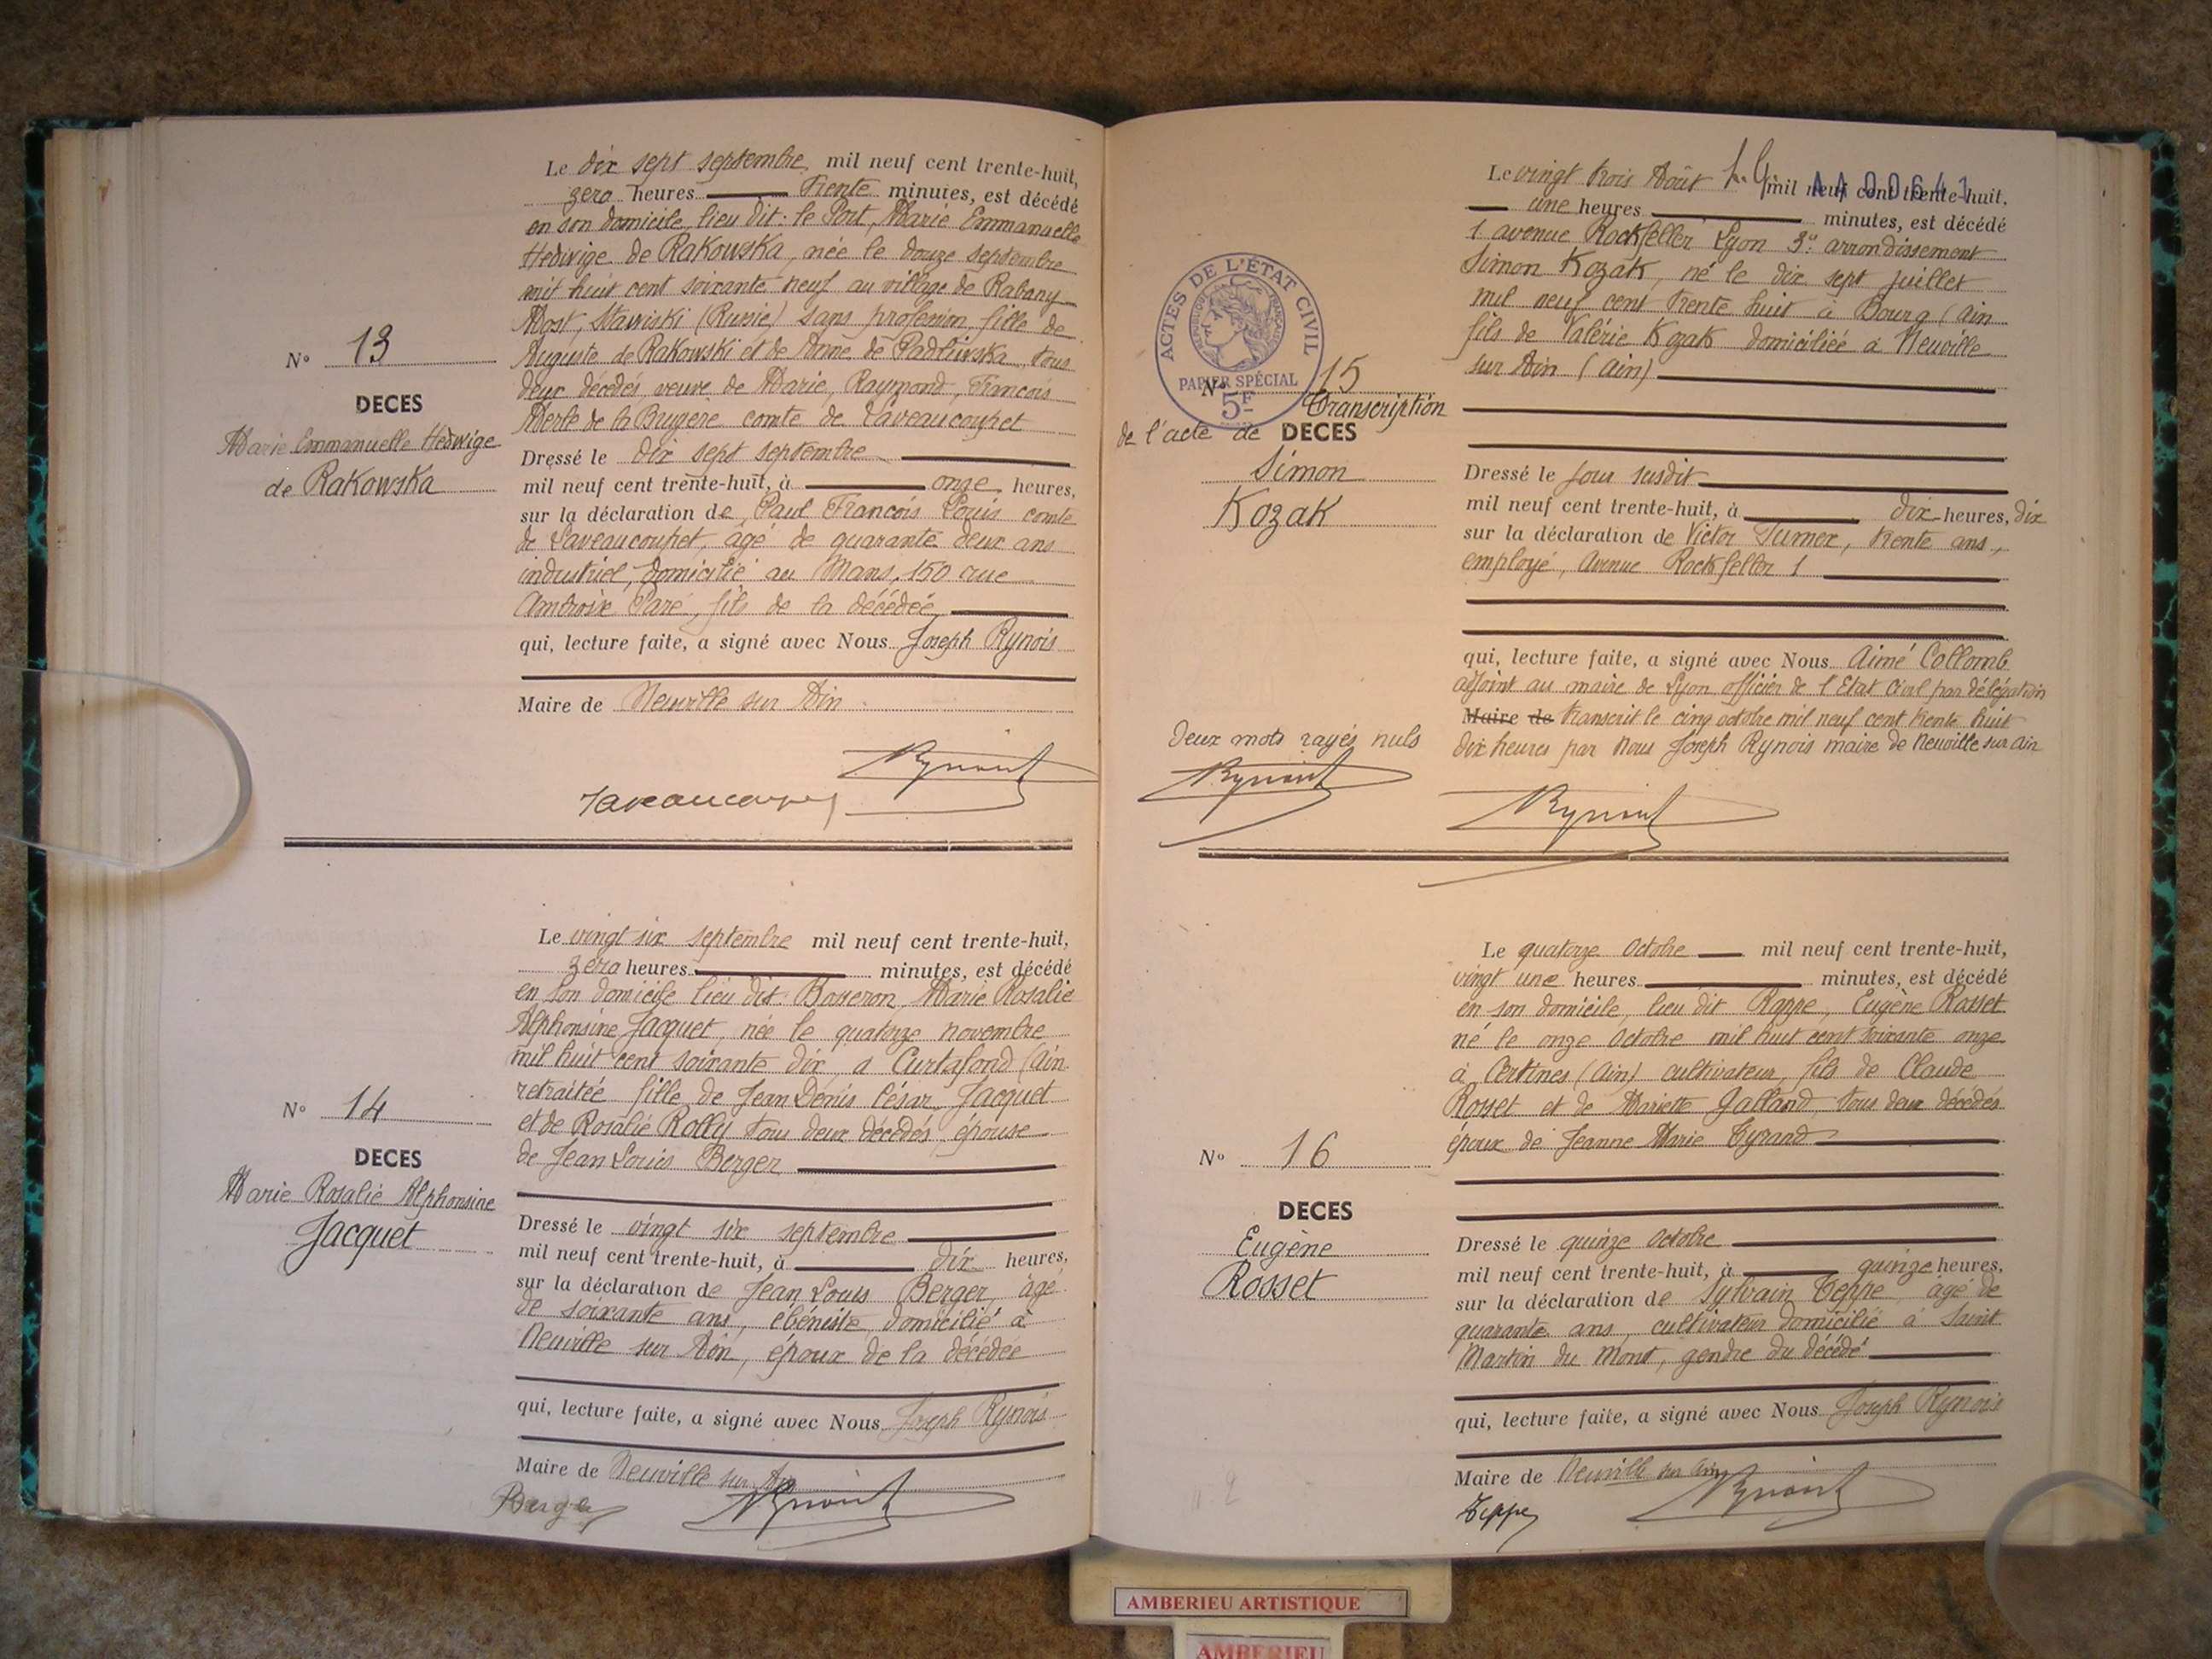 Le dix sept septembre mil neuf cent trente-huit,
zero heures trente minutes, est décédé
en son domicile, lieu dit: le Port, Marie Emmanuelle
Hedwige de Rakowska, née le douze septembre
mil huit cent soixante neuf au village de Rabany
Most, Stawiski (Russie) sans profession, fille de
Auguste de Rakowski et de Anne de Padlewska, tous
deux décédés, veuve de Marie, Raymond, François
Merle de la Brugère comte de Laveaucoupet
N° 13
DECES
Marie Emmanuelle Hedwige
de Rakowska
Dressé le dix sept septembre
mil neuf cent trente-huit, à onze heures,
sur la déclaration de Paul François Louis comte
de Laveaucoupet, âgé de quarante deux ans
industriel, domicilié au Mans, 150 rue
Ambroise Paré, fils de la décédée,
qui, lecture faite, a signé avec Nous Joseph Rynois
Maire de Neuville sur Ain
Rynois
Laveaucoupet
Le vingt six septembre mil neuf cent trente-huit,
zero heures minutes, est décédé
en son domicile lieu dit Bosseron, Marie Rosalie
Alphonsine Jacquet, née le quatorze novembre
mil huit cent soixante dix, a Curtafond (Ain
retraitée fille de Jean Denis César Jacquet
et de Rosalie Rolly tous deux décédés, épouse
de Jean Louis Berger
N° 14
DECES
Marie Rosalie Alphonsine
Jacquet
Dressé le vingt six septembre
mil neuf cent trente-huit, à dix heures,
sur la déclaration de Jean Louis Berger, âgé
de soixante ans, ébéniste, domicilié à
Neuville sur Ain, époux de la décédée
qui, lecture faite, a signé avec Nous Joseph Rynois
Maire de Neuville sur Ain
Berger Rynois
Le vingt trois Août mil neuf cent trente-huit,
AA00641
une heures minutes, est décédé
1 avenue Rockfeller Lyon 3e arrondissement
Simon Kozak, né le dix sept juillet
mil neuf cent trente huit à Bourg (Ain
fils de Valérie Kozak domiciliée à Neuville
sur Ain (Ain)
ACTES DE L'ÉTAT CIVIL
PAPIER SPÉCIAL
5F
N° 15
Transcription
de l'acte de DECES
Simon
Kozak
Dressé le jour susdit
mil neuf cent trente-huit, à dix heures, dix
sur la déclaration de Victor Jumex, trente ans,
employé, Avenue Rockfeller 1
qui, lecture faite, a signé avec Nous Aimé Collomb
adjoint au maire de Lyon officier de l'Etat Civil par délégation
Maire de transcrit le cinq octobre mil neuf cent trente huit
dix heures par nous Joseph Rynois maire de Neuville sur Ain
Deux mots rayés nuls
Rynois
Rynois
Le quatorze Octobre mil neuf cent trente-huit,
vingt une heures minutes, est décédé
en son domicile, lieu dit Rappe, Eugène Rosset
né le onze Octobre mil huit cent soixante onze
à Certines (Ain) cultivateur, fils de Claude
Rosset et de Mariette Galland, tous deux décédés
époux de Jeanne Marie Tyrand
N° 16
DECES
Eugène
Rosset
Dressé le quinze Octobre
mil neuf cent trente-huit, à quinze heures,
sur la déclaration de Sylvain Teppe, âgé de
quarante ans, cultivateur domicilié à Saint
Martin du Mont, gendre du décédé
qui, lecture faite, a signé avec Nous Joseph Rynois
Maire de Neuville sur Ain
Teppe Rynois
AMBERIEU ARTISTIQUE
AMBERIEU